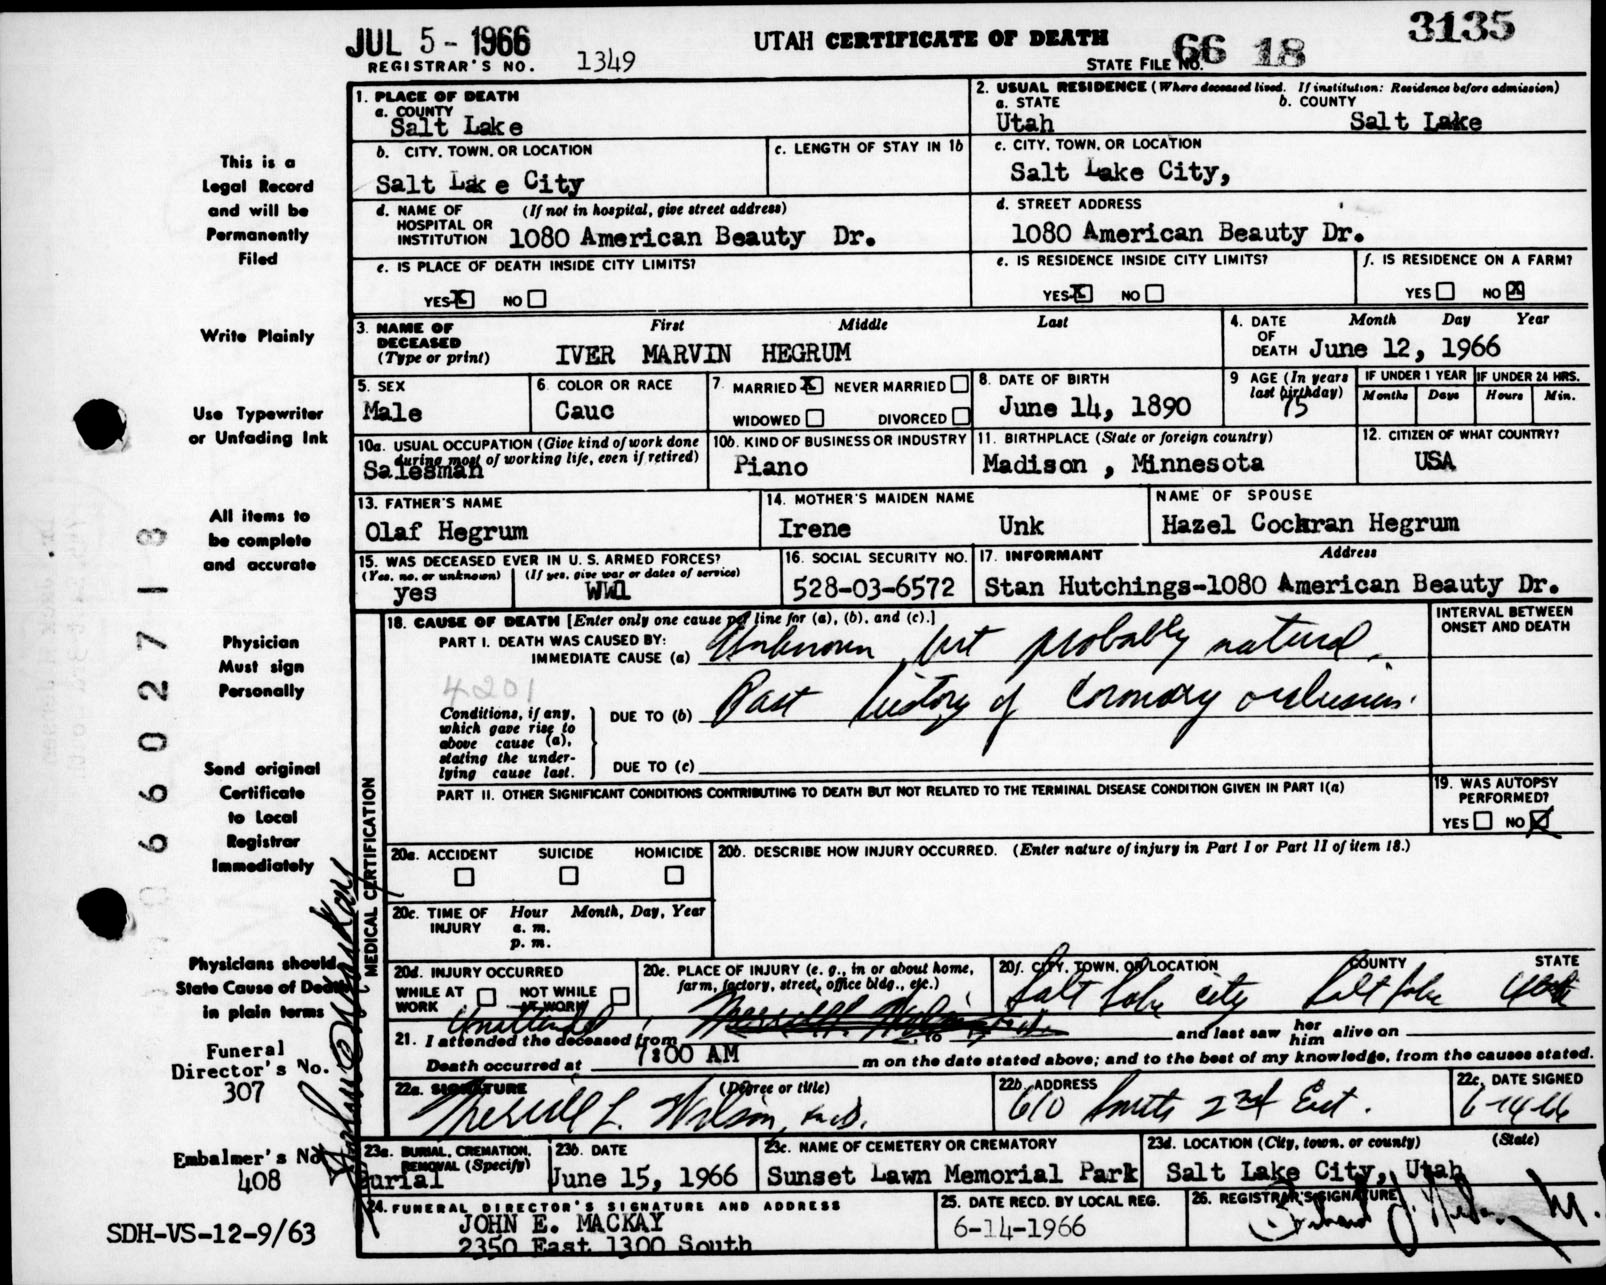 JUL 5 - 1966
UTAH CERTIFICATE OF DEATH
3135
REGISTRAR'S NO. 1349
STATE FILE NO. 66 18
This is a
Legal Record
and will be
Permanently
Filed
Write Plainly
Use Typewriter
or Unfading Ink
All items to
be complete
and accurate
Physician
Must sign
Personally
Send original
Certificate
to Local
Registrar
Immediately
Physicians should
State Cause of Death
in plain terms
Funeral
Director's No.
307
Embalmer's No.
408
SDH-VS-12-9/63
06602718
1. PLACE OF DEATH
a. COUNTY
Salt Lake
2. USUAL RESIDENCE (Where deceased lived. If institution: Residence before admission)
a. STATE b. COUNTY
Utah Salt Lake
b. CITY, TOWN, OR LOCATION
Salt Lake City
c. LENGTH OF STAY IN 1b
c. CITY, TOWN, OR LOCATION
Salt Lake City,
d. NAME OF (If not in hospital, give street address)
HOSPITAL OR
INSTITUTION 1080 American Beauty Dr.
d. STREET ADDRESS
1080 American Beauty Dr.
e. IS PLACE OF DEATH INSIDE CITY LIMITS?
YES X NO
e. IS RESIDENCE INSIDE CITY LIMITS?
YES X NO
f. IS RESIDENCE ON A FARM?
YES NO X
3. NAME OF First Middle Last
DECEASED
(Type or print) IVER MARVIN HEGRUM
4. DATE Month Day Year
OF
DEATH June 12, 1966
5. SEX
Male
6. COLOR OR RACE
Cauc
7. MARRIED X NEVER MARRIED
WIDOWED DIVORCED
8. DATE OF BIRTH
June 14, 1890
9 AGE (In years
last birthday)
75
IF UNDER 1 YEAR
Months Days
IF UNDER 24 HRS.
Hours Min.
10a. USUAL OCCUPATION (Give kind of work done
during most of working life, even if retired)
Salesman
10b. KIND OF BUSINESS OR INDUSTRY
Piano
11. BIRTHPLACE (State or foreign country)
Madison , Minnesota
12. CITIZEN OF WHAT COUNTRY?
USA
13. FATHER'S NAME
Olaf Hegrum
14. MOTHER'S MAIDEN NAME
Irene Unk
NAME OF SPOUSE
Hazel Cochran Hegrum
15. WAS DECEASED EVER IN U. S. ARMED FORCES?
(Yes, no, or unknown) (If yes, give war or dates of service)
yes WW1
16. SOCIAL SECURITY NO.
528-03-6572
17. INFORMANT Address
Stan Hutchings-1080 American Beauty Dr.
MEDICAL CERTIFICATION
18. CAUSE OF DEATH [Enter only one cause per line for (a), (b), and (c).]
INTERVAL BETWEEN
ONSET AND DEATH
PART I. DEATH WAS CAUSED BY:
IMMEDIATE CAUSE (a) Unknown, but probably natural.
4201
Conditions, if any,
which gave rise to
above cause (a),
stating the under-
lying cause last.
DUE TO (b) Past history of coronary occlusion.
DUE TO (c)
PART II. OTHER SIGNIFICANT CONDITIONS CONTRIBUTING TO DEATH BUT NOT RELATED TO THE TERMINAL DISEASE CONDITION GIVEN IN PART I(a)
19. WAS AUTOPSY
PERFORMED?
YES NO X
20a. ACCIDENT SUICIDE HOMICIDE
20b. DESCRIBE HOW INJURY OCCURRED. (Enter nature of injury in Part I or Part II of item 18.)
20c. TIME OF Hour Month, Day, Year
INJURY a. m.
p. m.
20d. INJURY OCCURRED
WHILE AT NOT WHILE
WORK AT WORK
20e. PLACE OF INJURY (e. g., in or about home,
farm, factory, street, office bldg., etc.)
20f. CITY, TOWN, OR LOCATION COUNTY STATE
Salt Lake City Salt Lake Utah
Unattended
21. I attended the deceased from to and last saw her him alive on
Death occurred at 7:00 AM m on the date stated above; and to the best of my knowledge, from the causes stated.
22a. SIGNATURE (Degree or title)
Merrill L. Wilson, M.D.
22b. ADDRESS
610 South 2nd East.
22c. DATE SIGNED
6-14-66
23a. BURIAL, CREMATION,
REMOVAL (Specify)
Burial
23b. DATE
June 15, 1966
23c. NAME OF CEMETERY OR CREMATORY
Sunset Lawn Memorial Park
23d. LOCATION (City, town, or county) (State)
Salt Lake City, Utah
24. FUNERAL DIRECTOR'S SIGNATURE AND ADDRESS
JOHN E. MACKAY
2350 East 1300 South
25. DATE RECD. BY LOCAL REG.
6-14-1966
26. REGISTRAR'S SIGNATURE